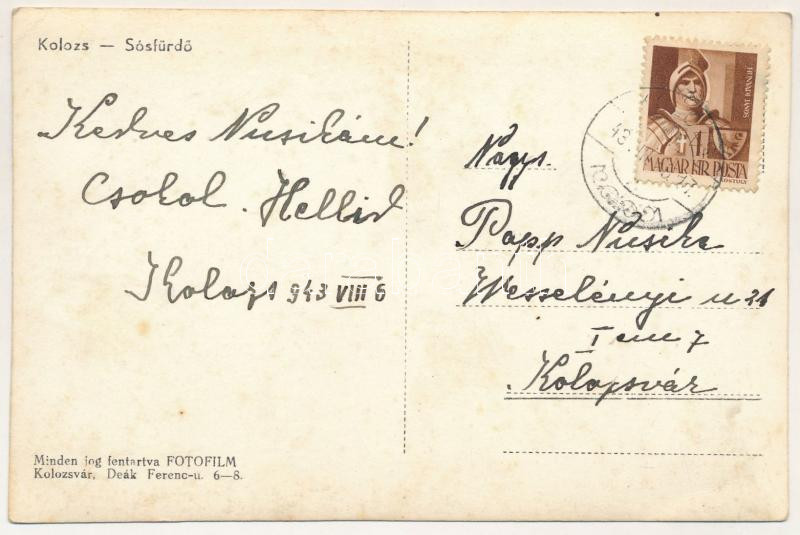 Kolozs — Sósfürdő
Kedves Nusikám!
Csokol. Hellid
Kolozs 943 VIII 6
Minden jog fentartva FOTOFILM
Kolozsvár, Deák Ferenc-u. 6—8.
HUNYADI JÁNOS
1
MAGYAR KIR. POSTA
Nagys.
Papp Nusika
Wesselényi u 21
I em 7
Kolozsvár